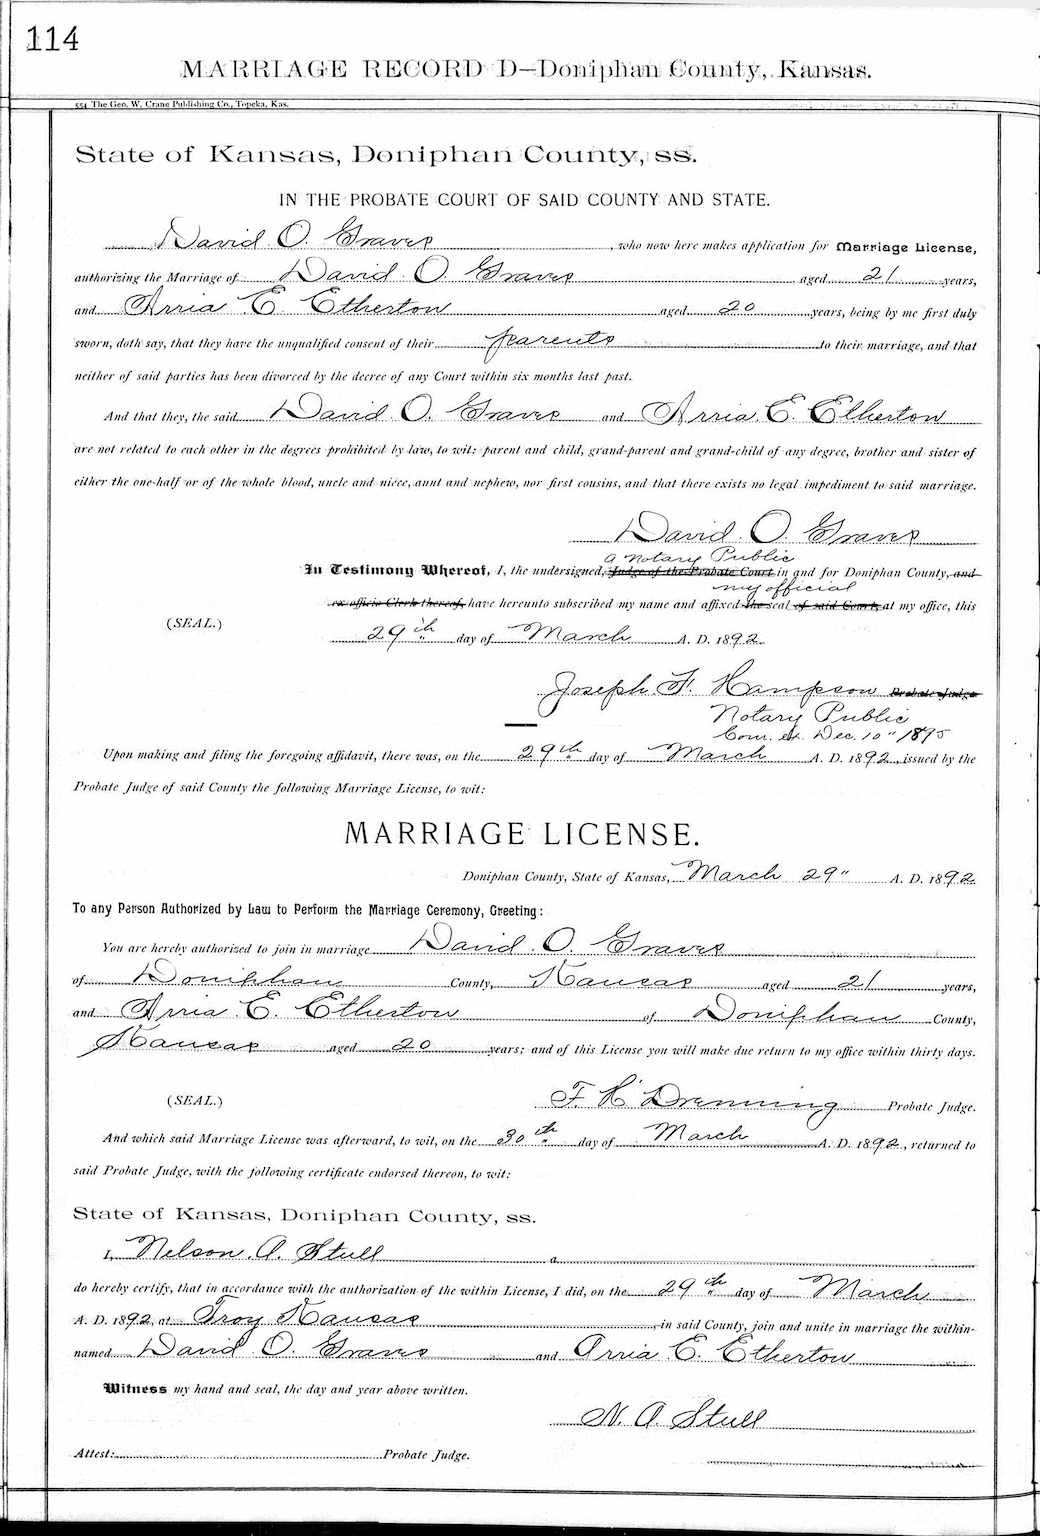 114
MARRIAGE RECORD D—Doniphan County, Kansas.
554 The Geo. W. Crane Publishing Co., Topeka, Kas.
State of Kansas, Doniphan County, ss.
IN THE PROBATE COURT OF SAID COUNTY AND STATE.
David O. Graves, who now here makes application for Marriage License,
authorizing the Marriage of David O Graves aged 21 years,
and Arria E Etherton aged 20 years, being by me first duly
sworn, doth say, that they have the unqualified consent of their parents to their marriage, and that
neither of said parties has been divorced by the decree of any Court within six months last past.
And that they, the said David O. Graves and Arria E. Etherton
are not related to each other in the degrees prohibited by law, to wit: parent and child, grand-parent and grand-child of any degree, brother and sister of
either the one-half or of the whole blood, uncle and niece, aunt and nephew, nor first cousins, and that there exists no legal impediment to said marriage.
David O. Graves
a Notary Public
In Testimony Whereof, I, the undersigned, Judge of the Probate Court in and for Doniphan County, and
my official
ex officio Clerk thereof, have hereunto subscribed my name and affixed the seal of said Court, at my office, this
(SEAL.)
29th day of March A. D. 1892.
Joseph F. Hampson Probate Judge
Notary Public
Com. ex. Dec. 10" 1895
Upon making and filing the foregoing affidavit, there was, on the 29th day of March A. D. 1892, issued by the
Probate Judge of said County the following Marriage License, to wit:
MARRIAGE LICENSE.
Doniphan County, State of Kansas, March 29" A. D. 1892.
To any Person Authorized by Law to Perform the Marriage Ceremony, Greeting:
You are hereby authorized to join in marriage David O. Graves
of Doniphan County, Kansas aged 21 years,
and Arria E. Etherton of Doniphan County,
Kansas aged 20 years; and of this License you will make due return to my office within thirty days.
(SEAL.)
F. H. Drenning Probate Judge.
And which said Marriage License was afterward, to wit, on the 30th day of March A. D. 1892, returned to
said Probate Judge, with the following certificate endorsed thereon, to wit:
State of Kansas, Doniphan County, ss.
I, Nelson. A. Stull a
do hereby certify, that in accordance with the authorization of the within License, I did, on the 29th day of March
A. D. 1892, at Troy Kansas, in said County, join and unite in marriage the within-
named David O. Graves and Arria E. Etherton
Witness my hand and seal, the day and year above written.
N. A. Stull
Attest: Probate Judge.